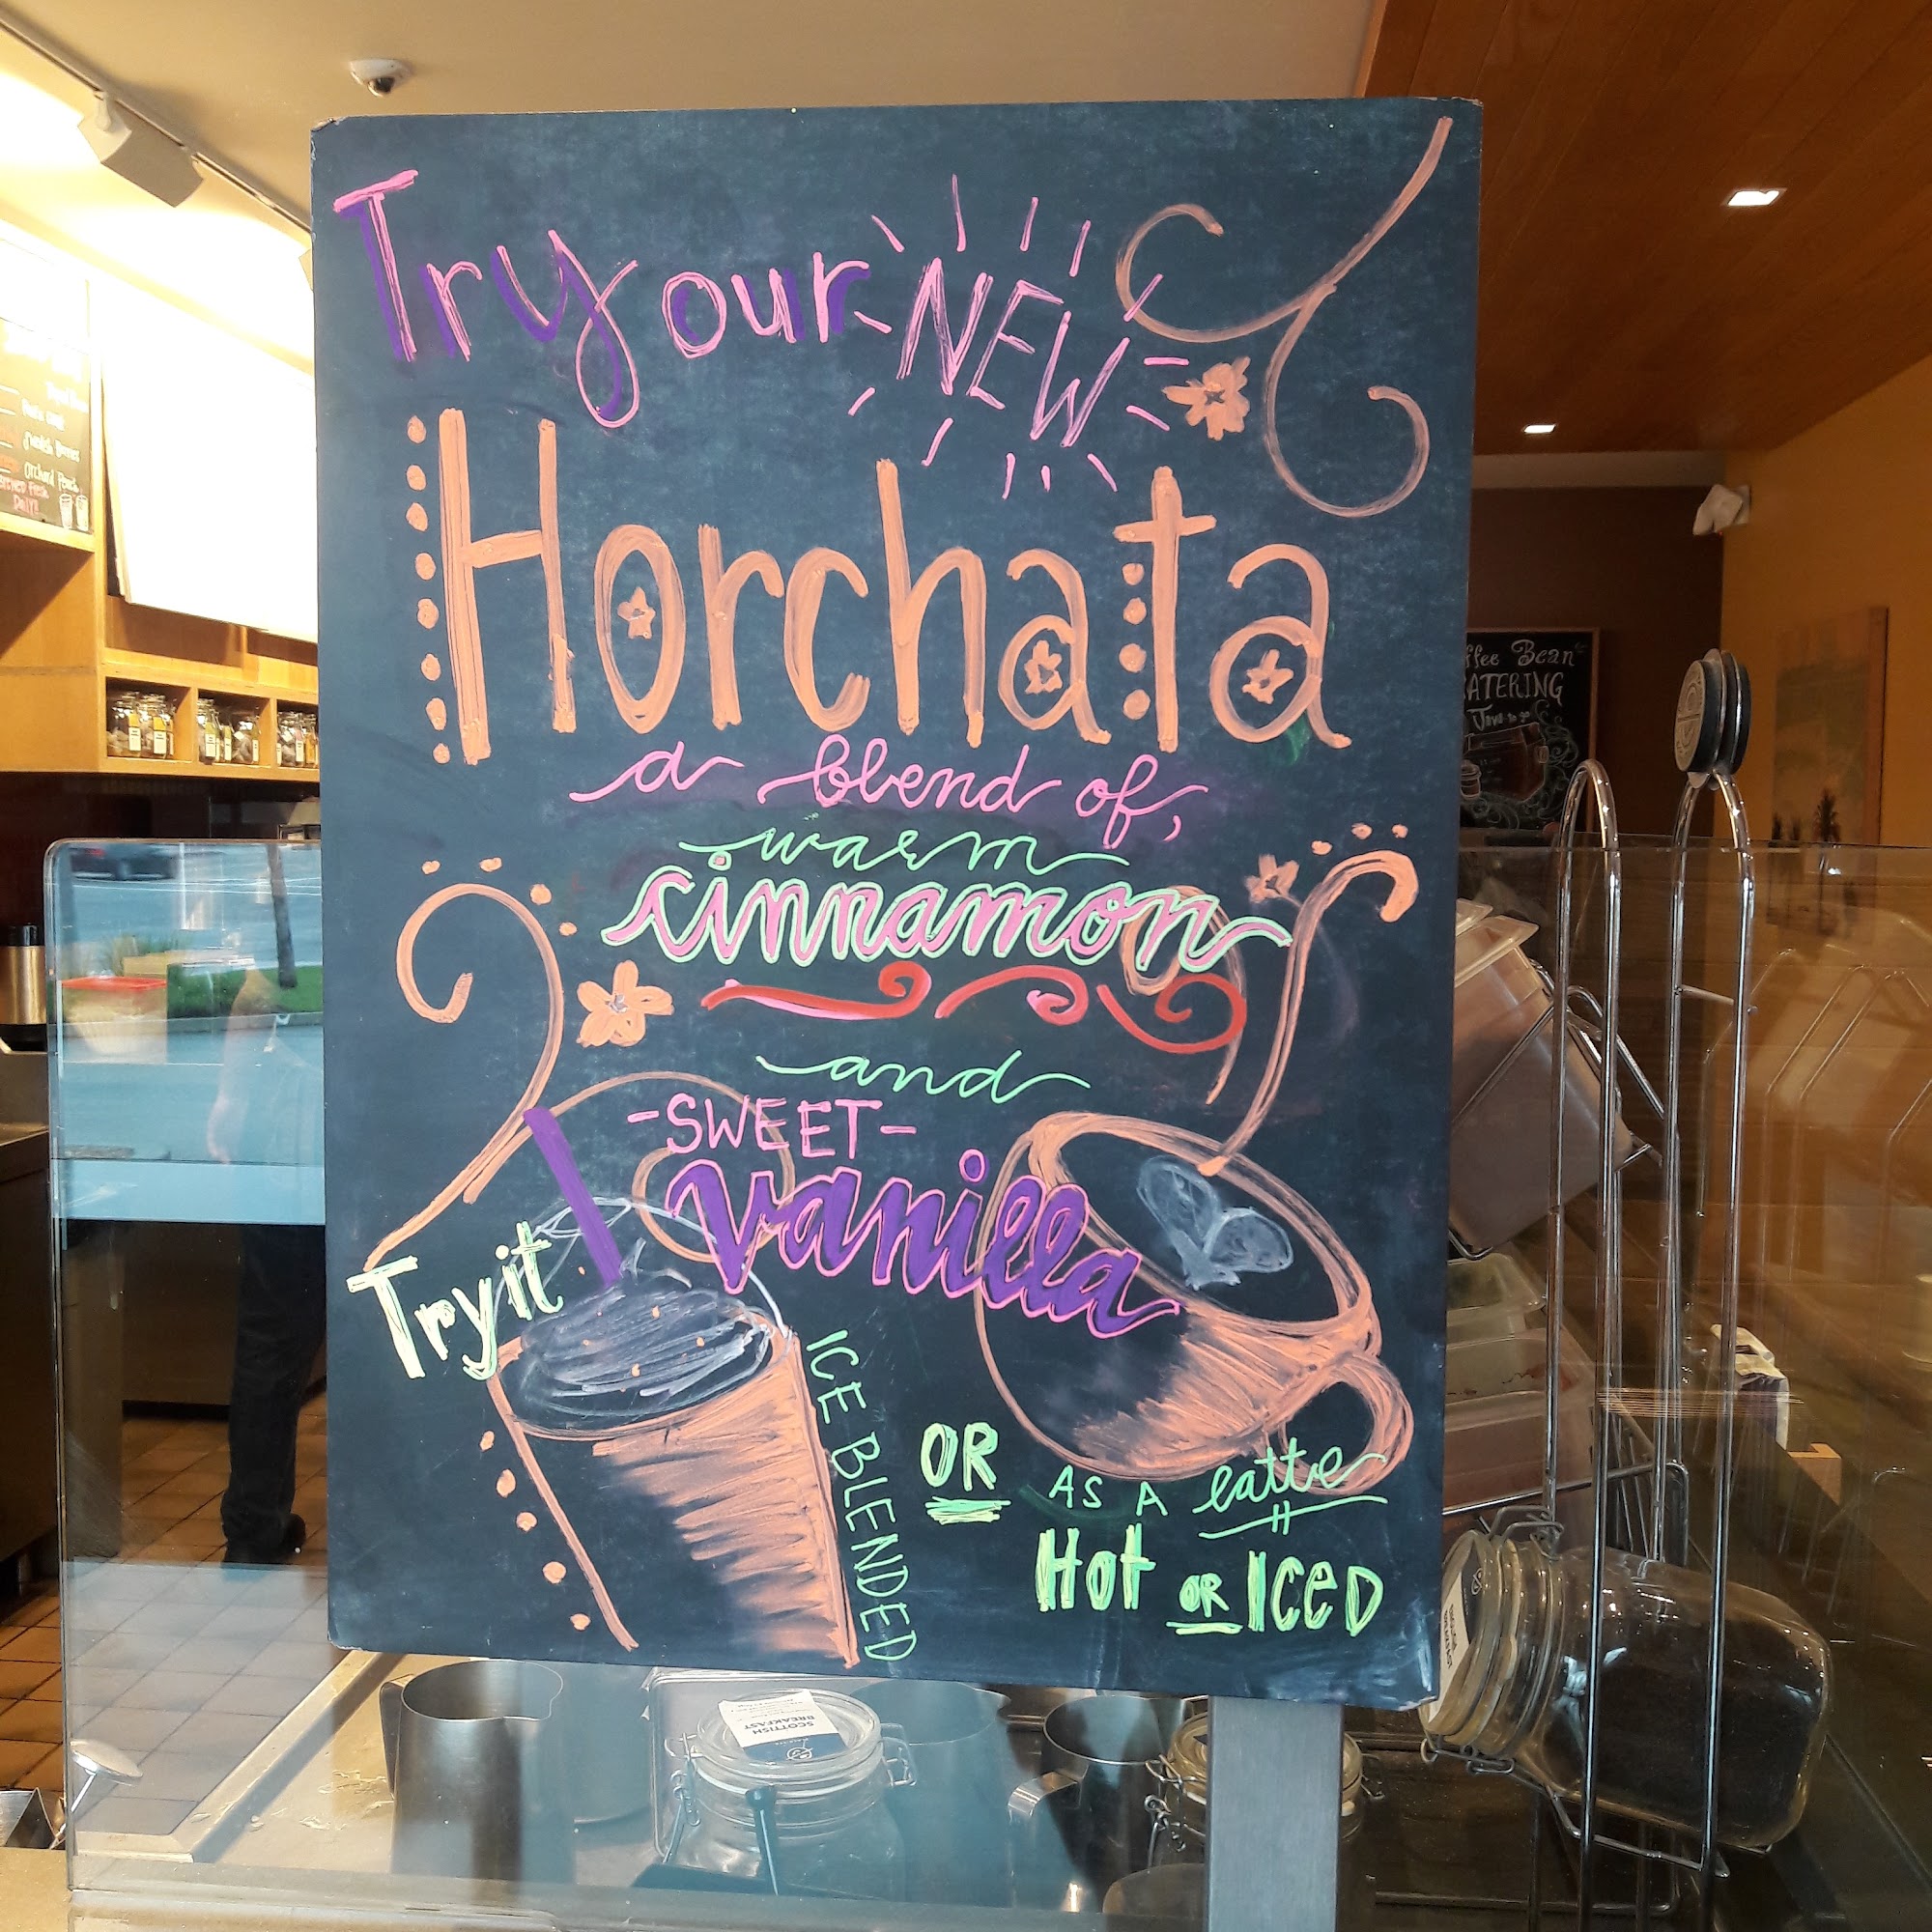 Try our NEW
Horchata
a blend of,
warm
cinnamon
and
-SWEET-
vanilla
Try it
ICE BLENDED
OR
AS A latte
Hot OR ICED
ffee Bean
CATERING
Java to go
Orchard Peach
Daily!
SCOTTISH
BREAKFAST